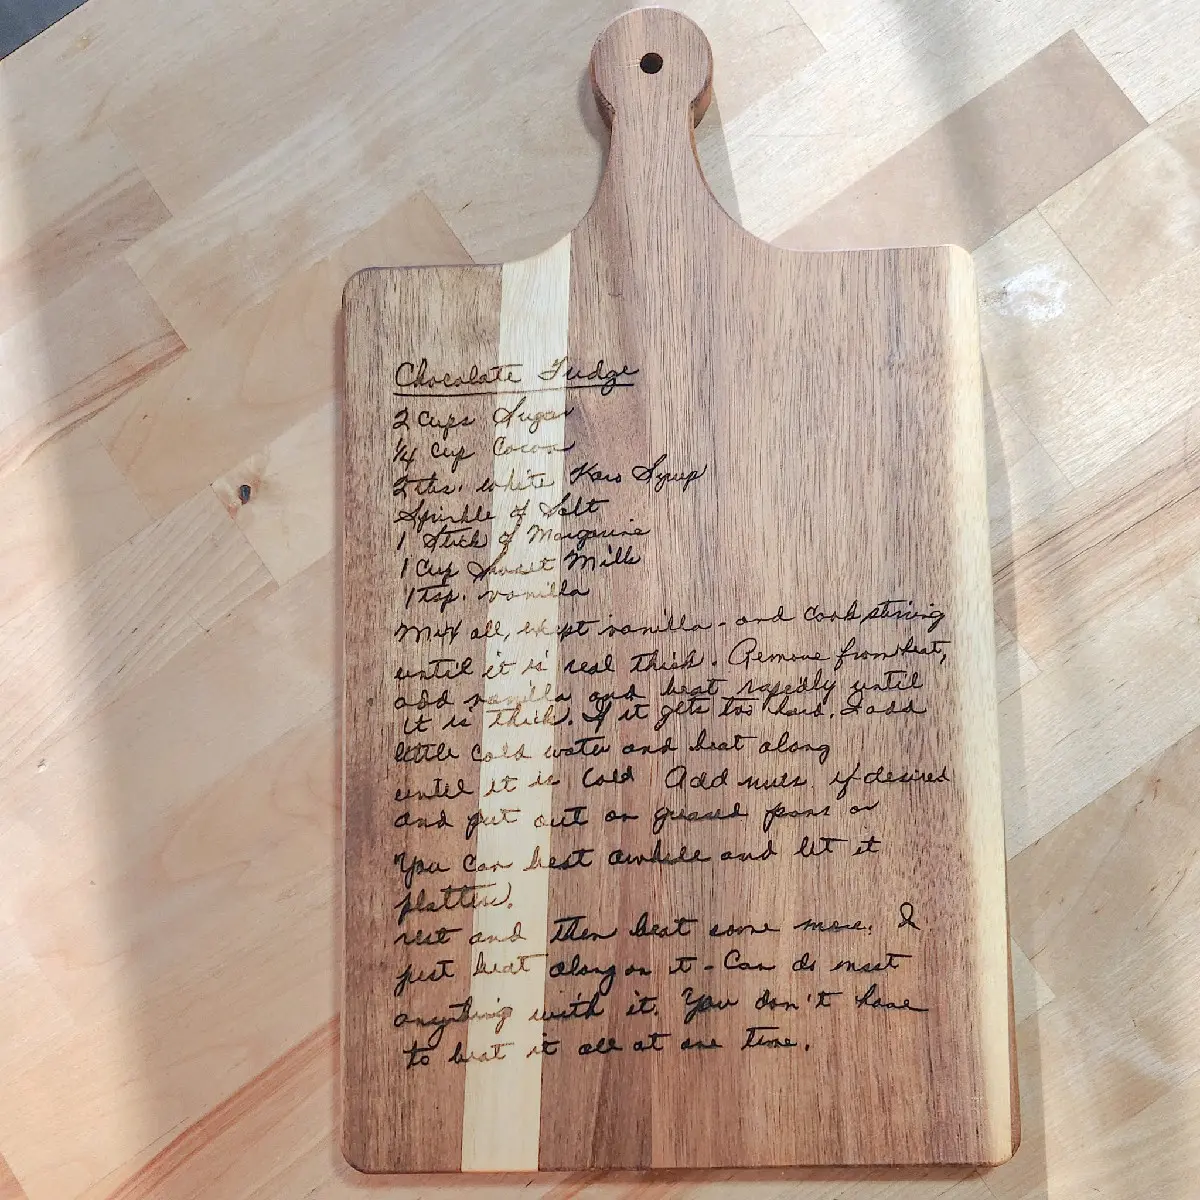 Chocolate Fudge
2 Cups Sugar
1/4 Cup Cocoa
2 tbs. white Karo Syrup
Sprinkle of Salt
1 Stick of Margarine
1 Cup Sweet Milk
1 tsp. vanilla
Mix all, except vanilla - and cook stirring
until it is real thick. Remove from heat,
add vanilla and beat rapedly until
it is thick. If it gets too hard, I add
little cold water and beat along
until it is cold Add nuts if desired
and put out on greased pans or
You can beat awhile and let it
platter.
rest and then beat some more. I
just beat along on it - Can do most
anything with it. You don't have
to beat it all at one time.